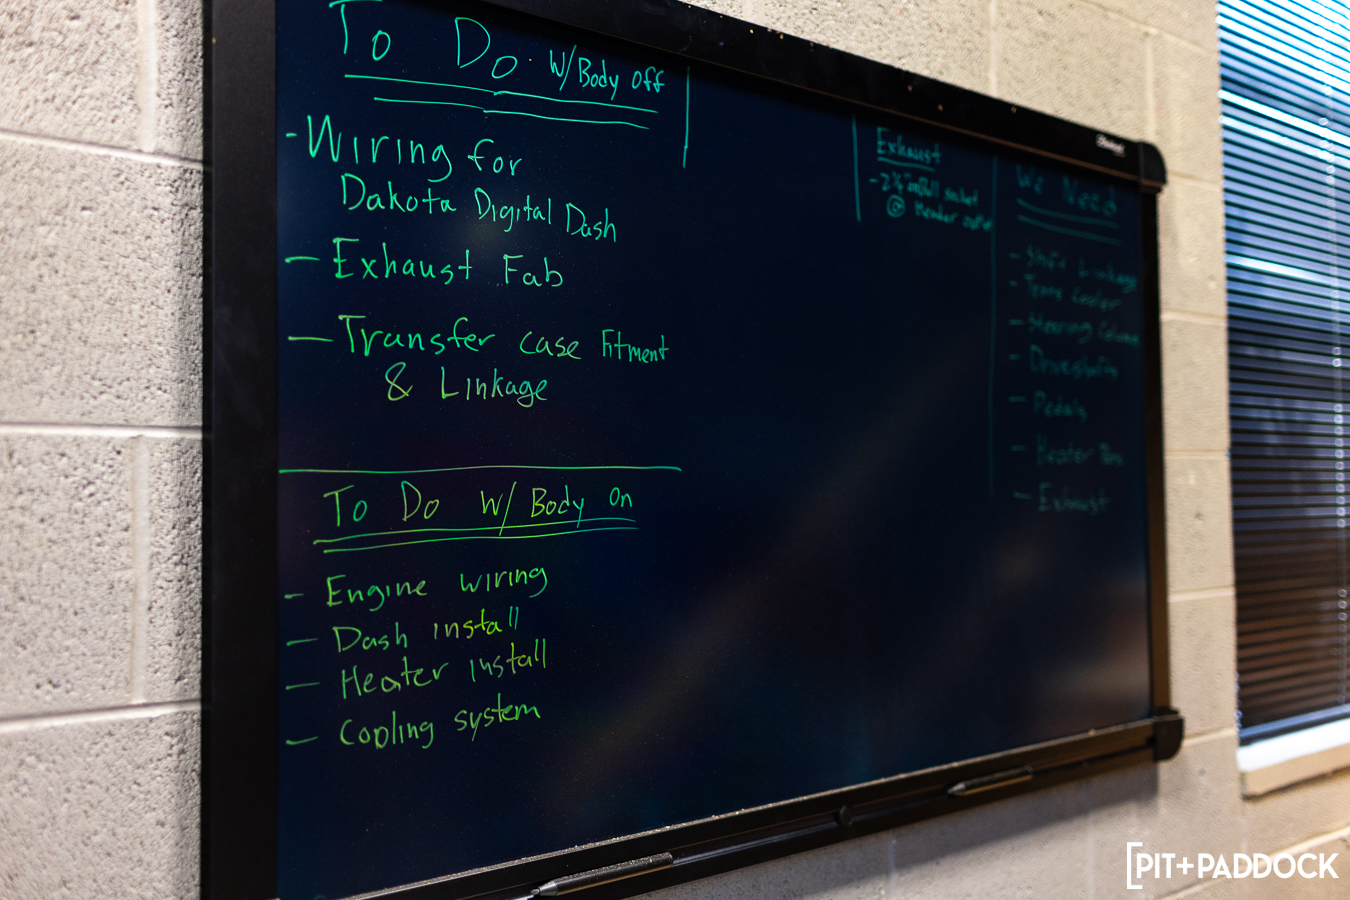 To Do w/Body off
- Wiring for
Dakota Digital Dash
- Exhaust Fab
- Transfer case Fitment
& Linkage
To Do w/ Body On
- Engine wiring
- Dash install
- Heater install
- Cooling system
Exhaust
socket
@ Header outlet
We Need
- Shift Linkage
- Trans cooler
- Steering Column
- Driveshafts
- Pedals
- Heater Box
- Exhaust
[PIT+PADDOCK